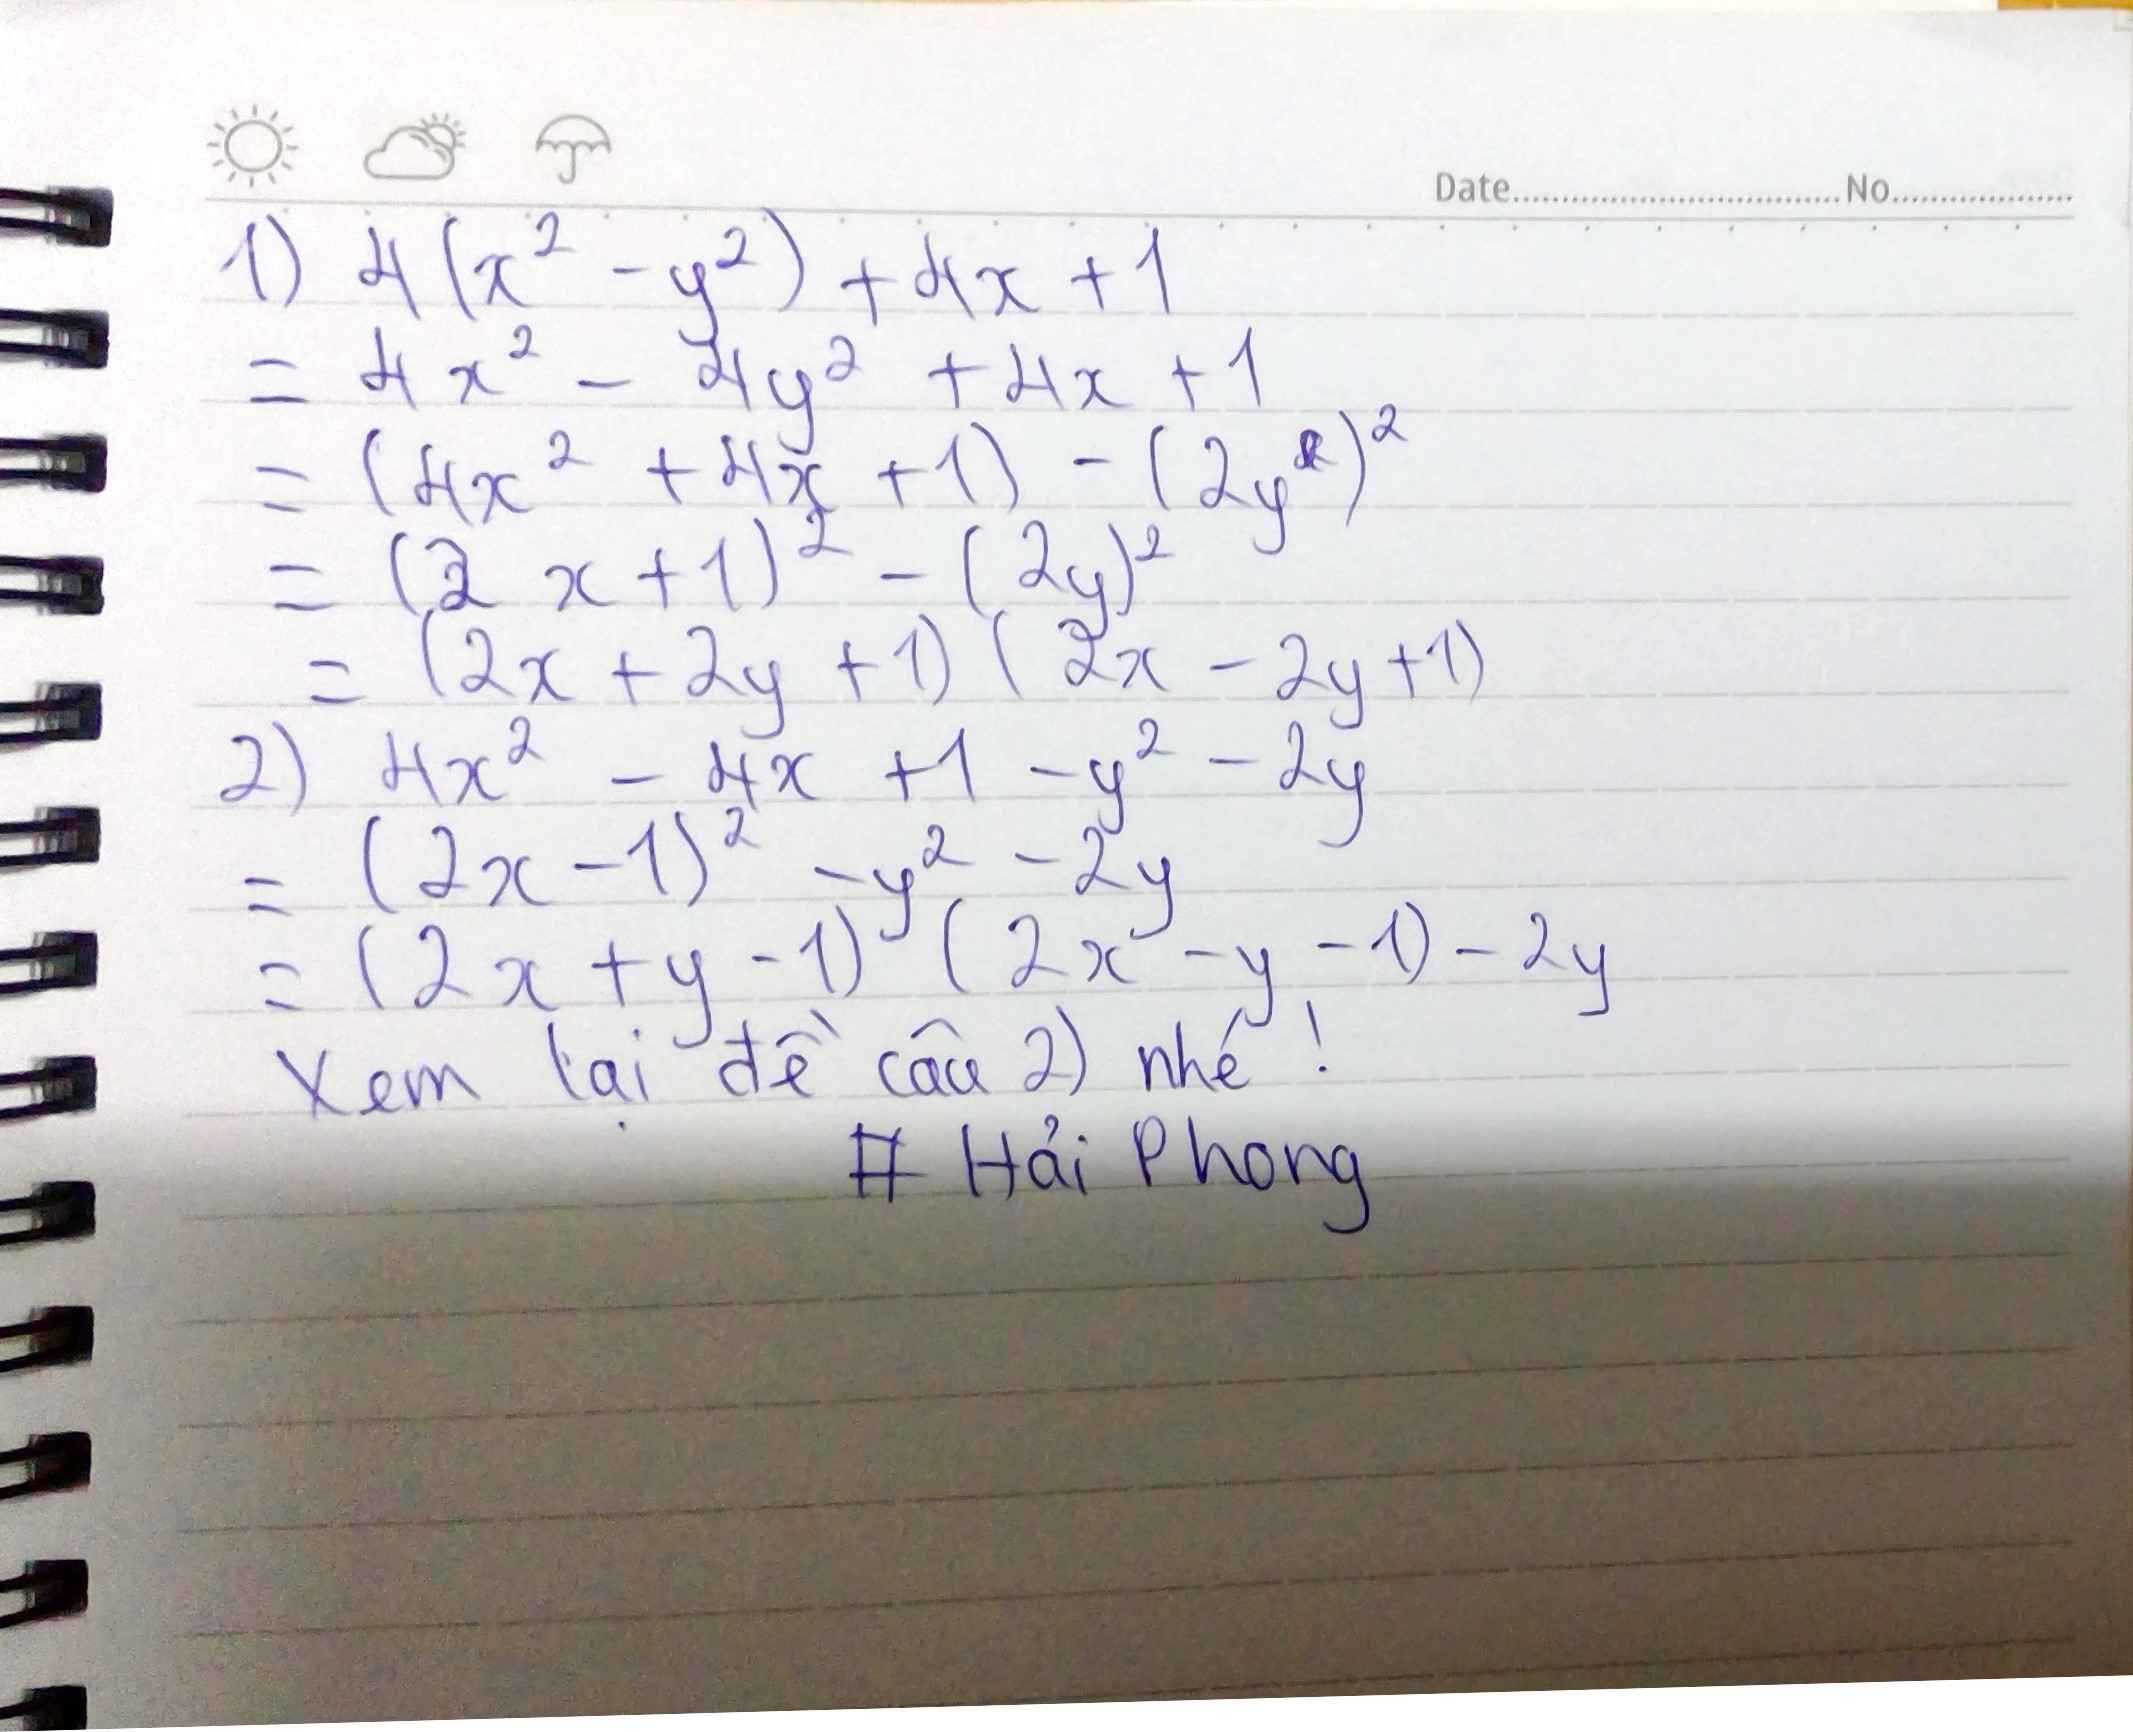 Date..............................No..................
1) 4(x² - y²) + 4x + 1
= 4x² - 4y² + 4x + 1
= (4x² + 4x + 1) - (2y)²
= (2x + 1)² - (2y)²
= (2x + 2y + 1) (2x - 2y + 1)
2) 4x² - 4x + 1 - y² - 2y
= (2x - 1)² - y² - 2y
= (2x + y - 1) (2x - y - 1) - 2y
Xem lại đề câu 2) nhé !
# Hải Phong